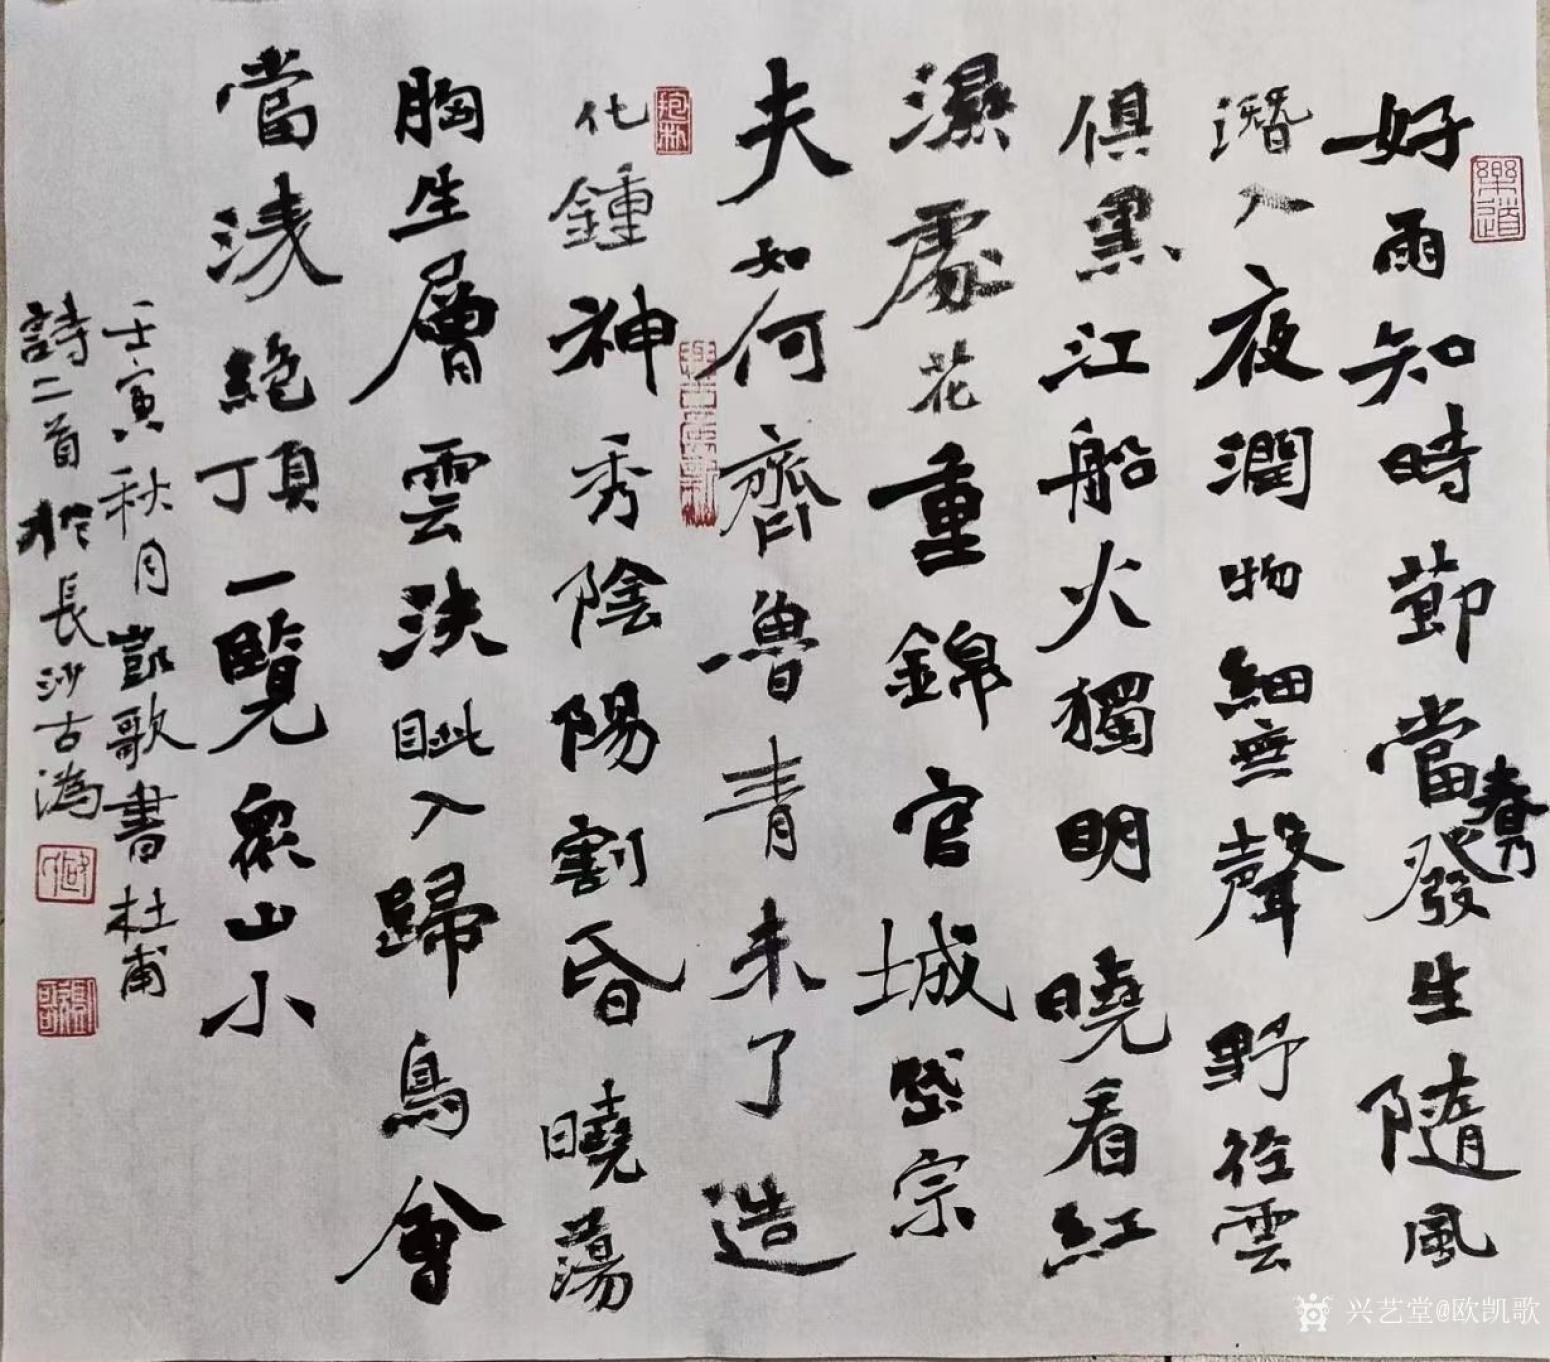 樂道
好雨知時節當發生隨風
春乃
潛入夜潤物細無聲野徑雲
俱黑江船火獨明曉看紅
濕處花重錦官城岱宗
夫如何齊魯青未了造
與古為新
抱朴
化鍾神秀陰陽割昏曉蕩
胸生層雲決眥入歸鳥會
當淩絕頂一覽眾山小
壬寅秋月凱歌書杜甫
詩二首於長沙古溈
兴艺堂@欧凯歌